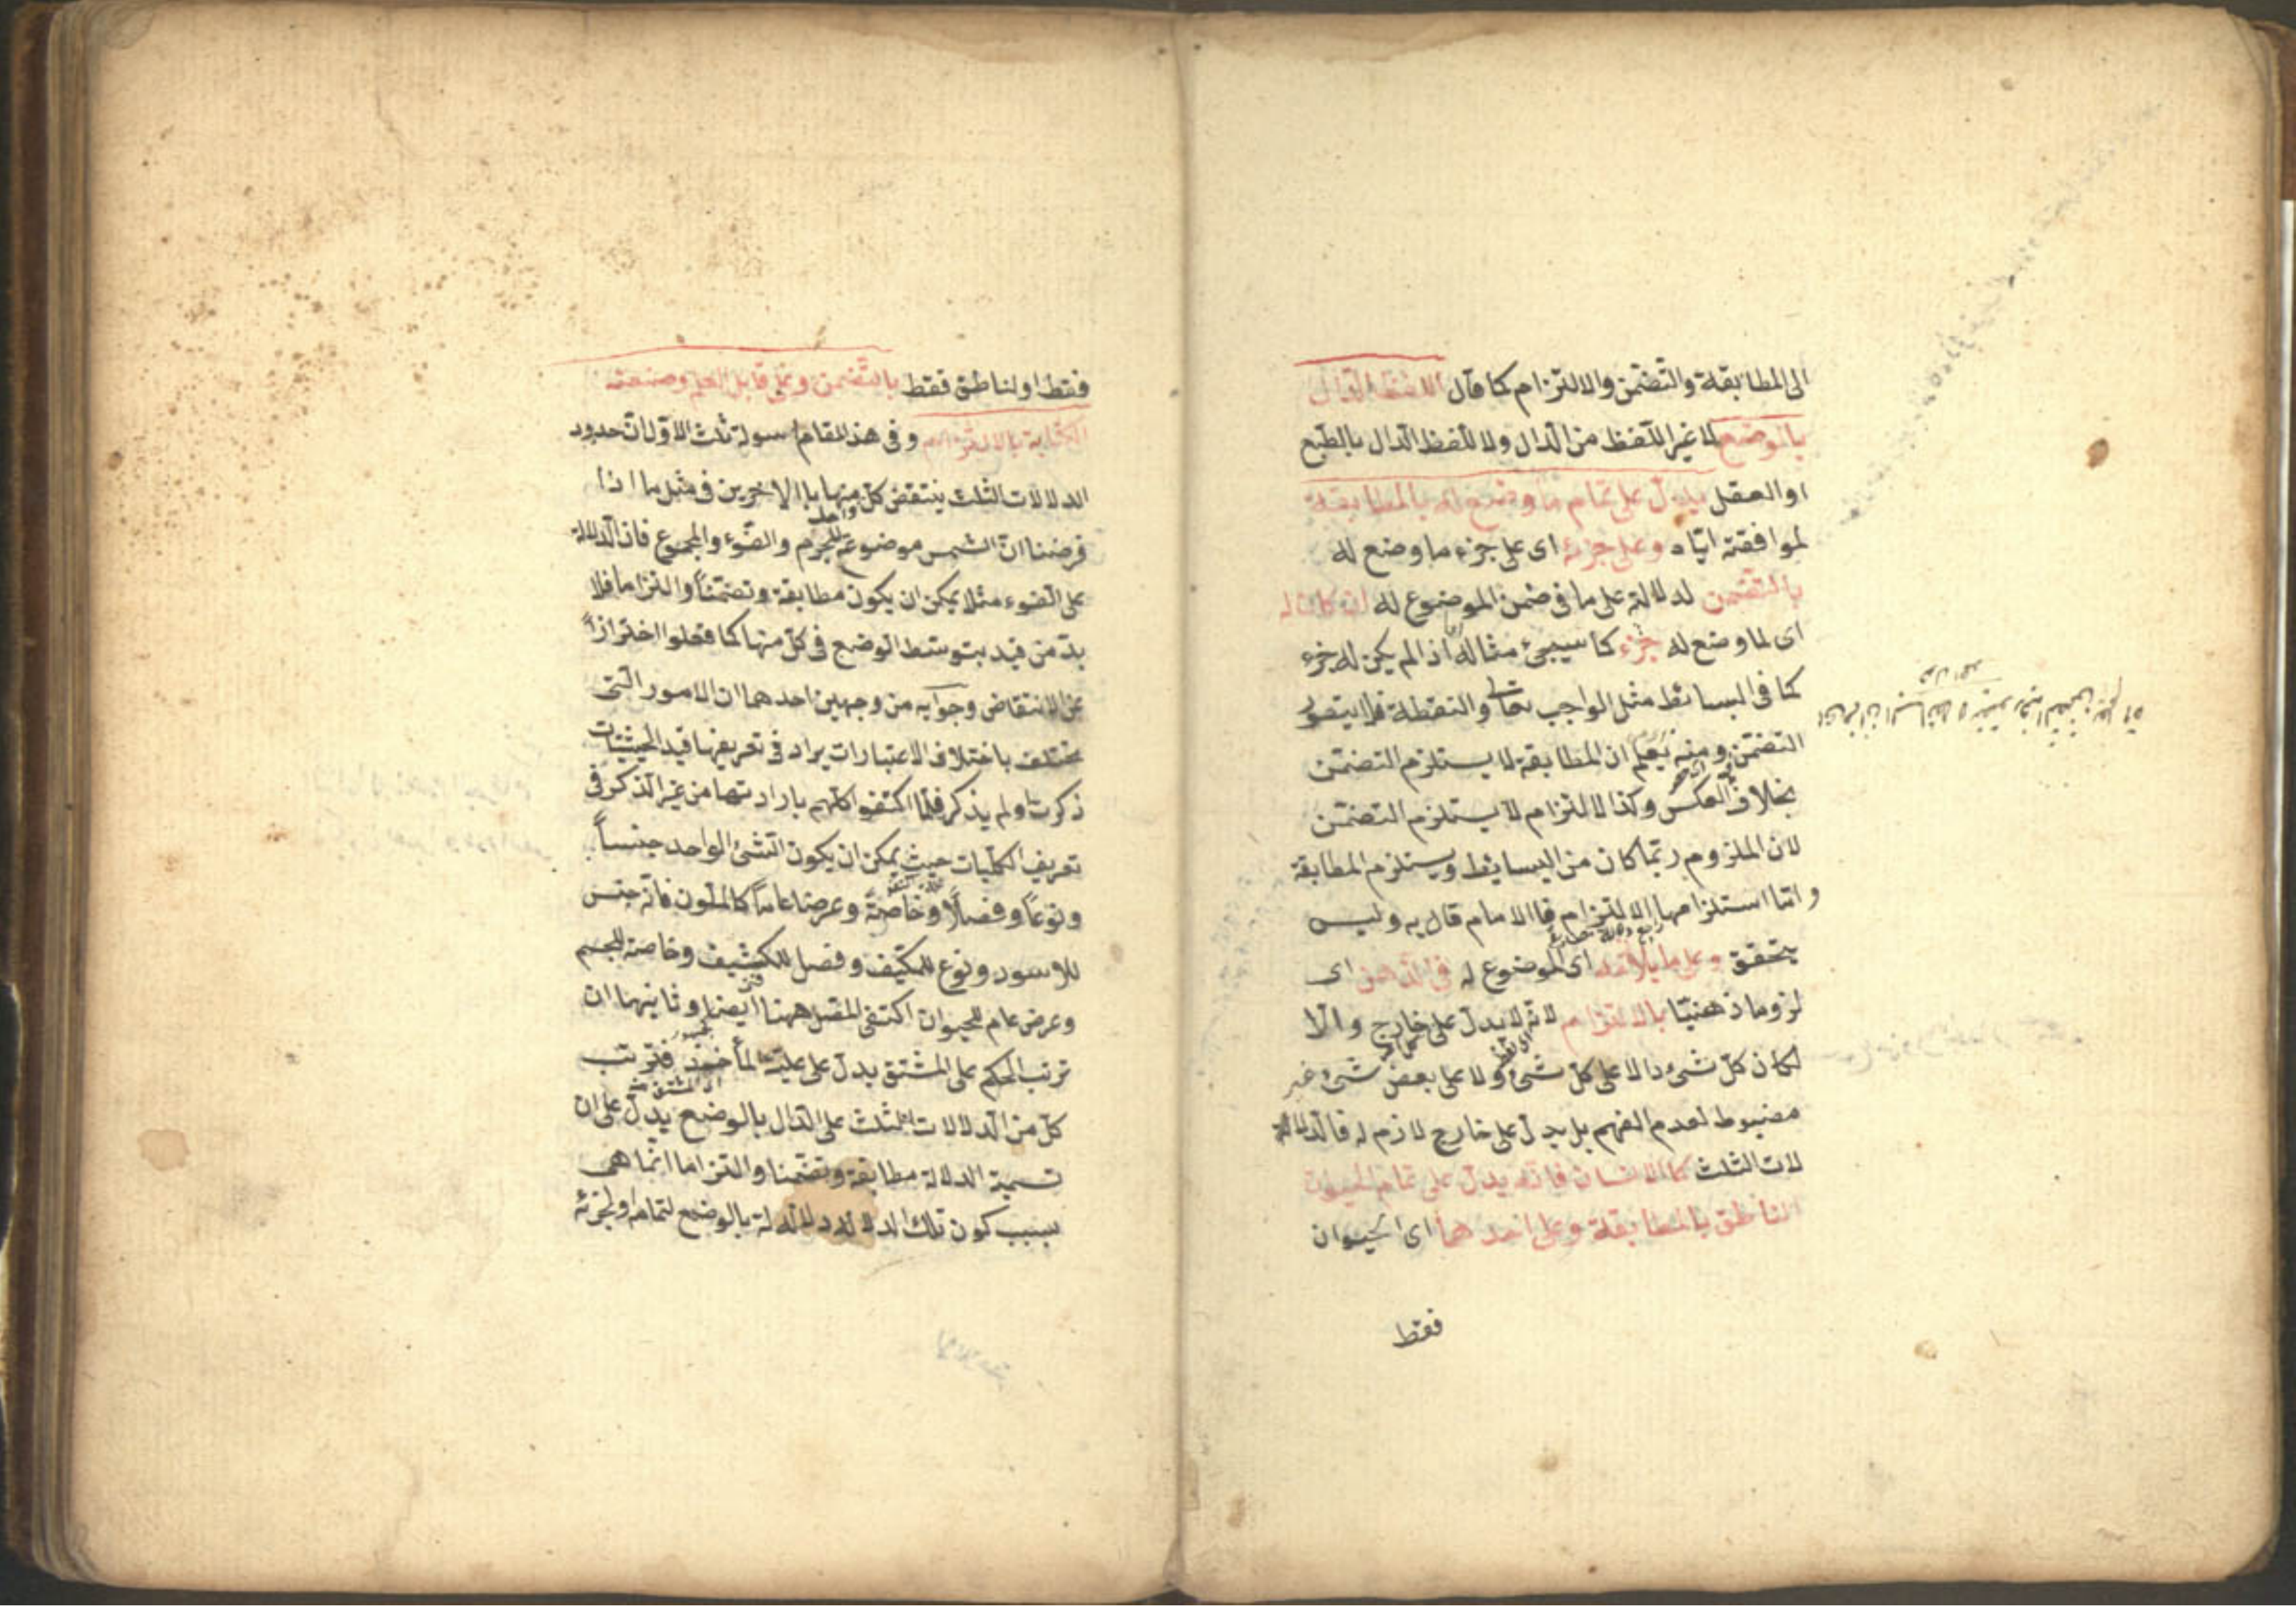 الى المطابقة والتضمن والالتزام كما قال اللفظ الدال
بالوضع لا غير اللفظ من الدال ولا للفظ الدال بالطبع
او العقل يدل على تمام ما وضع له بالمطابقة
لموافقته اياه وعلى جزئه اى على جزء ما وضع له
بالتضمن لدلالته على ما فى ضمن الموضوع له ان كان له
اى لما وضع له جزء كما سيجئ مثاله اذا لم يكن له جزء
كما فى البسائط مثل الواجب تعالى والنقطة فلا يتصور
التضمن ومنه يعلم ان المطابقة لا يستلزم التضمن
بخلاف العكس وكذا الالتزام لا يستلزم التضمن
لان الملزوم ربما كان من البسايط ويستلزم المطابقة
واما استلزامها الالتزام فالامام قال به وليس
بمتحقق وعلى ما يلازمه اى الموضوع له فى الذهن اى
لزوما ذهنيا بالالتزام لانه لا يدل على خارج والا
لكان كل شئ دالا على كل شئ ولا على بعض شئ غير
مضبوط لعدم الفهم بل يدل على خارج لازم له فالدلالة
لات الثلث كالانسان فانه يدل على تمام الحيوان
الناطق بالمطابقة وعلى احدهما اى الحيوان
فقط
فقط او الناطق فقط بالتضمن وعلى قابل العلم وصنعة
الكتابة بالالتزام وفى هذا المقام اسولة ثلث الاول ان حدود
الدلالات الثلث ينتقض كل منها بالاخرين فى مثل ما اذا
فرضنا ان الشمس موضوع للجرم والضوء والمجموع فان الدلالة
واحد
على الضوء مثلا يمكن ان يكون مطابقة وتضمنا والتزاما فلا
بد من قيد بتوسط الوضع فى كل منها كما فعلوا احترازا
عن الانتقاض وجوابه من وجهين احدهما ان الامور التى
يختلف باختلاف الاعتبارات يراد فى تعريفها قيد الحيثيات
ذكرت او لم يذكر فلما اكتفوا كلهم بارادتها من غير الذكر فى
تعريف الكليات حيث يمكن ان يكون الشئ الواحد جنسا
ونوعا وفصلا وخاصة وعرضا عاما كالملون فانه جنس
للاسود ونوع للمكيف وفصل للكثيف وخاصة للجسم
وعرض عام للحيوان اكتفى المص ههنا ايضا وثانيهما ان
ترتب الحكم على المشتق يدل على علية المأخذ فترتب
كل من الدلالات الثلث على الدال بالوضع يدل على ان
تسمية الدلالة مطابقة وتضمنا والتزاما انما هى
بسبب كون تلك الدلالة دلالة بالوضع لتمامه او لجزئه